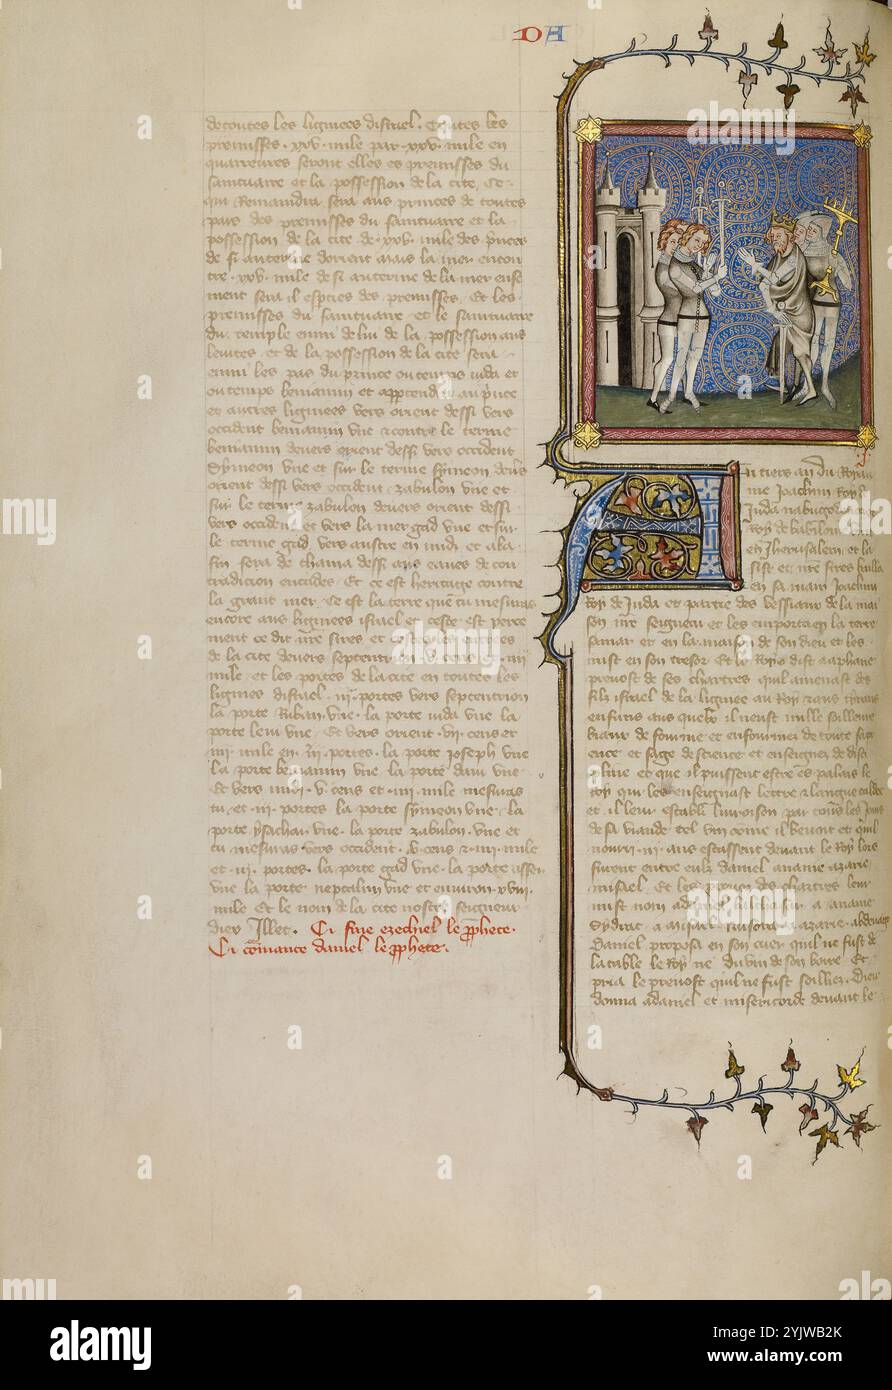 DA
de toutes les lignees disrael. Toutes les
premisses. xxv. mile par. xxv. mile en
quarreures seront elles es premisses du
saintuaire et la possession de la cite. Ce
qui Remaindra sera aus princes de toutes
pars des premisses du saintuaire et la
possession de la cite de. xxv. mile des
ment sera il es premisses. Et les
premisses du saintuaire et le saintuaire
du temple enmi de lui de la possession aus
leuites et de la possession de la cite sera
enmi les pas du prince ou temps iuda et
ou temps beniamin et au prince
et autres lignees vers orient dessi vers
occident beniamin vne et contre le terme
beniamin deuers orient dessi vers occident
Symeon vne et sur le terme symeon
orient dessi vers occident. zabulon vne et
sur le terme zabulon deuers orient dessi
vers occident et vers la mer gad vne et sur
le terme gad vers austre en midi et a la
fin sera de dessi aus eaues de con
tradicion encades. Et ce est heritage contre
la grant mer. Ce est la terre que tu mesuras
encore aus lignees israel et ceste est
ment ce dit nostre sires et
de la cite deuers septentrion. v. cens et. iiij
mile et les portes de la cite en toutes les
lignees disrael. iij. portes vers septentrion
la porte Ruben vne. la porte iuda vne la
porte leui vne. Et vers orient. vij. cens et
iiij. mile en. iij. portes. la porte Joseph vne
la porte beniamin vne la porte dam vne
Et vers midi. v. cens et. iiij. mile mesuras
tu. et. iij. portes la porte symeon vne. la
porte ysachar vne. la porte zabulon. vne et
tu mesuras vers occident. v. cens et. iiij. mile
et. iij. portes. la porte gad vne. la porte asser
vne la porte neptalim vne et enuiron. xviij.
mile Et le nom de la cite nostre seigneur
dieu Illec. Ci fine ezechiel le prophete.
Ci commance daniel le prophete.
j.
An tiers an du Royau
me Joachim Roy
Juda nabugo
Roy de babiloine
en Jherusalem et la
sist et nostre sires bailla
en sa main Joachim
Roy de Juda et partie des vessiaux de la mai
son nostre seigneur et les emporta en la terre
sanar et en la maison de son dieu et les
mist en son tresor Et le Roy dist a
prenost de ses chartres quil amenast des
filz israel de la lignee au Roy et aus tirans
enfans aus quelx il neust nulle soilleure
biaux de fourme et enfourmez de toute sapi
ence et sage de science et enseignez de disci
pline et que il puissent estre es palais le
Roy qui les enseignast lettre et langue caldee
et il leur establi liuroison par touz les Jours
de sa viande tel vin comme il beuoit et quil
nourri. iij. ans estassent deuant le Roy lors
furent entre eulz daniel ananie azarie
misael Et les des chartres leur
mist nom a daniel balthasar a ananie
Sydrac a misael a azarie abdenago
Daniel proposa en son cuer quil ne fust de
la table le Roy ne du vin de son boire Et
pria le prenost quil ne fust soilliez. Dieu
donna a daniel et misericorde deuant le
alamy
a
Image ID: 2YJWB2K
www.alamy.com